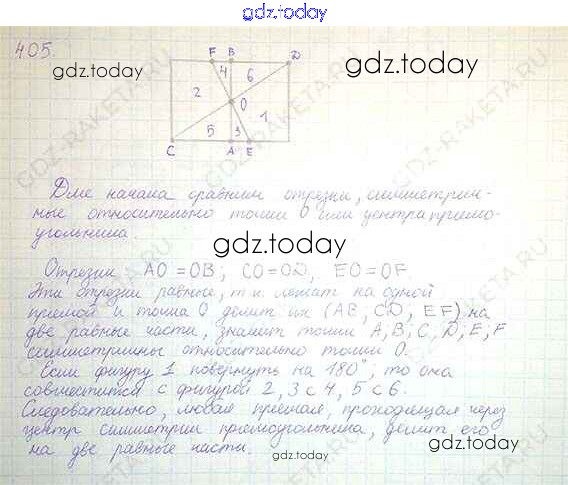 gdz.today
405.
gdz.today
gdz.today
F B D
4 6
2 O 1
5 3
C A E
Для начала сравним отрезки, симметрич-
ные относительно точки О или центра прямо-
угольника.
gdz.today
Отрезки AO = OB; CO = OD, EO = OF.
Эти отрезки равные, т.к. лежат на одной
прямой и точка О делит их (AB; CD, EF) на
две равные части, значит точки A, B; C, D; E; F
симметричны относительно точки О.
Если фигуру 1 повернуть на 180°, то она
совместится с фигурой 2, 3 с 4, 5 с 6.
Следовательно, любая прямая, проходящая через
центр симметрии прямоугольника, делит его
на две равные части.
gdz.today
gdz.today
GDZ-RAKETA.RU